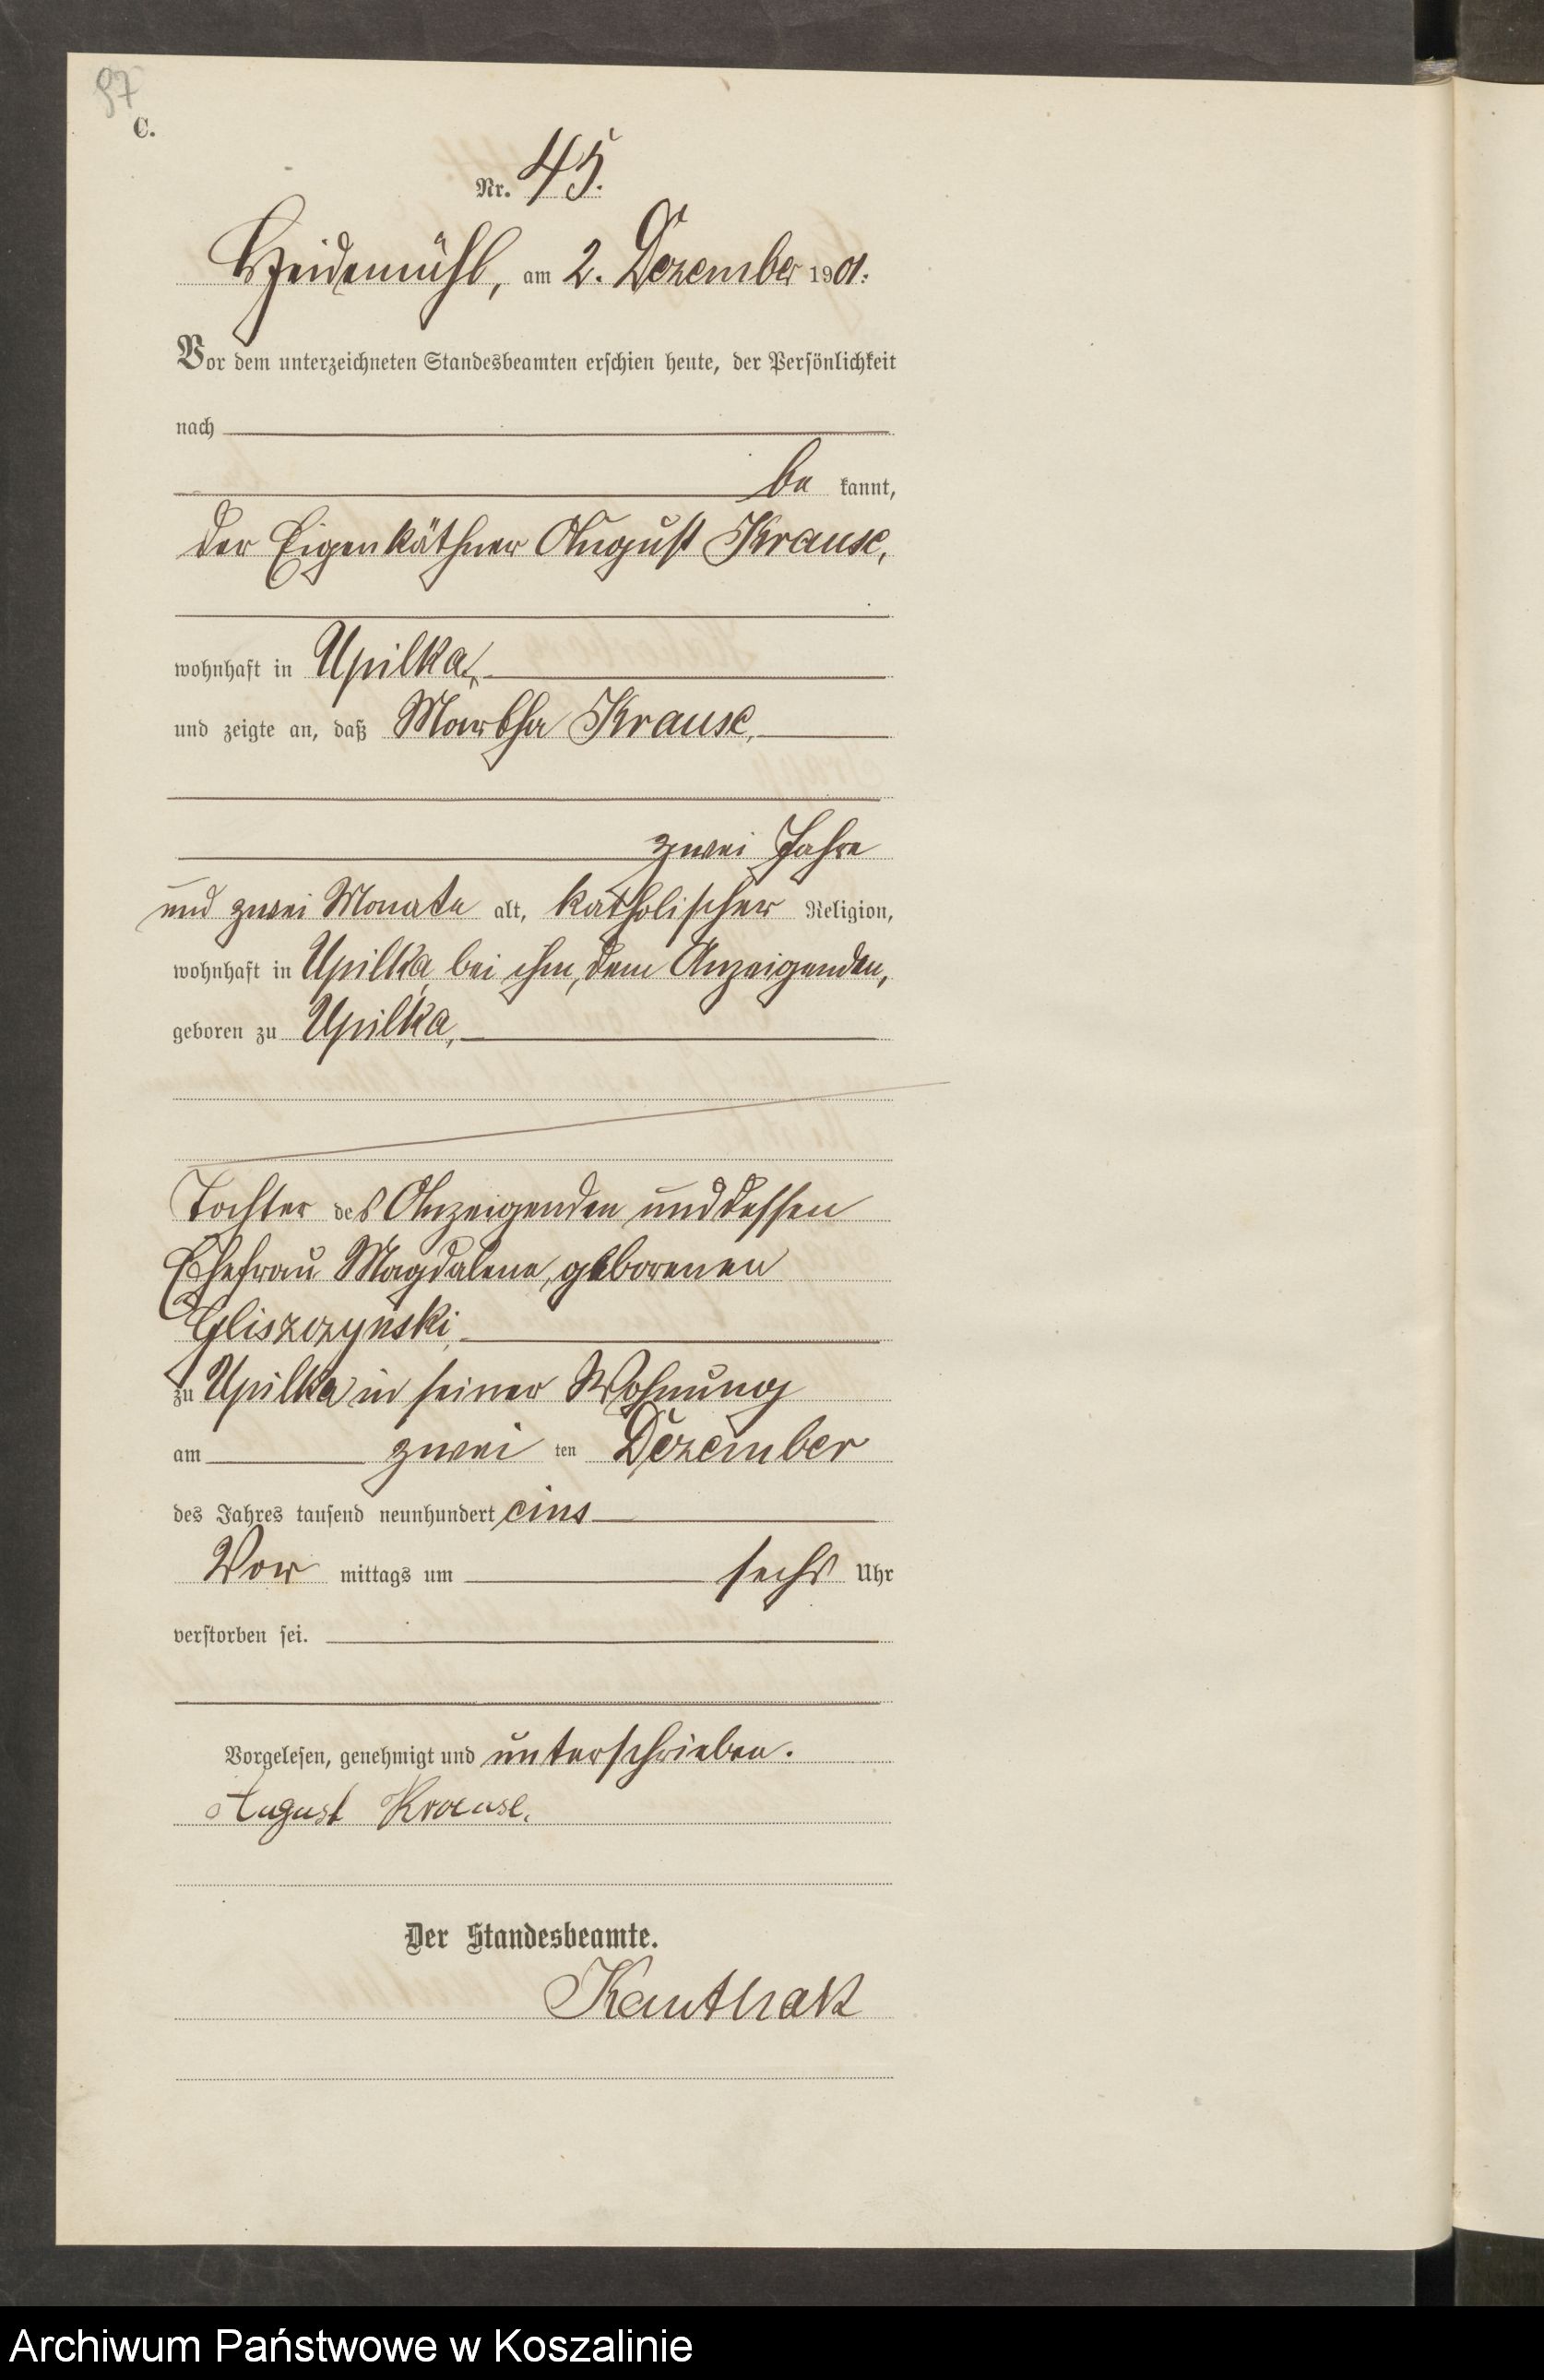 97
C.
Nr. 45.
Heidemühl, am 2. Dezember 1901.
Vor dem unterzeichneten Standesbeamten erschien heute, der Persönlichkeit
nach
be kannt,
der Eigenkäthner August Krause,
wohnhaft in Upilka,
und zeigte an, daß Martha Krause,
zwei Jahre
und zwei Monate alt, katholischer Religion,
wohnhaft in Upilka bei ihm, dem Anzeigenden,
geboren zu Upilka,
Tochter des Anzeigenden und dessen
Ehefrau Magdalene, geborenen
Gliszczynski,
zu Upilka in seiner Wohnung
am zwei ten Dezember
des Jahres tausend neunhundert eins
Vor mittags um sechs Uhr
verstorben sei.
Vorgelesen, genehmigt und unterschrieben.
August Krause.
Der Standesbeamte.
Kauthak
Archiwum Państwowe w Koszalinie